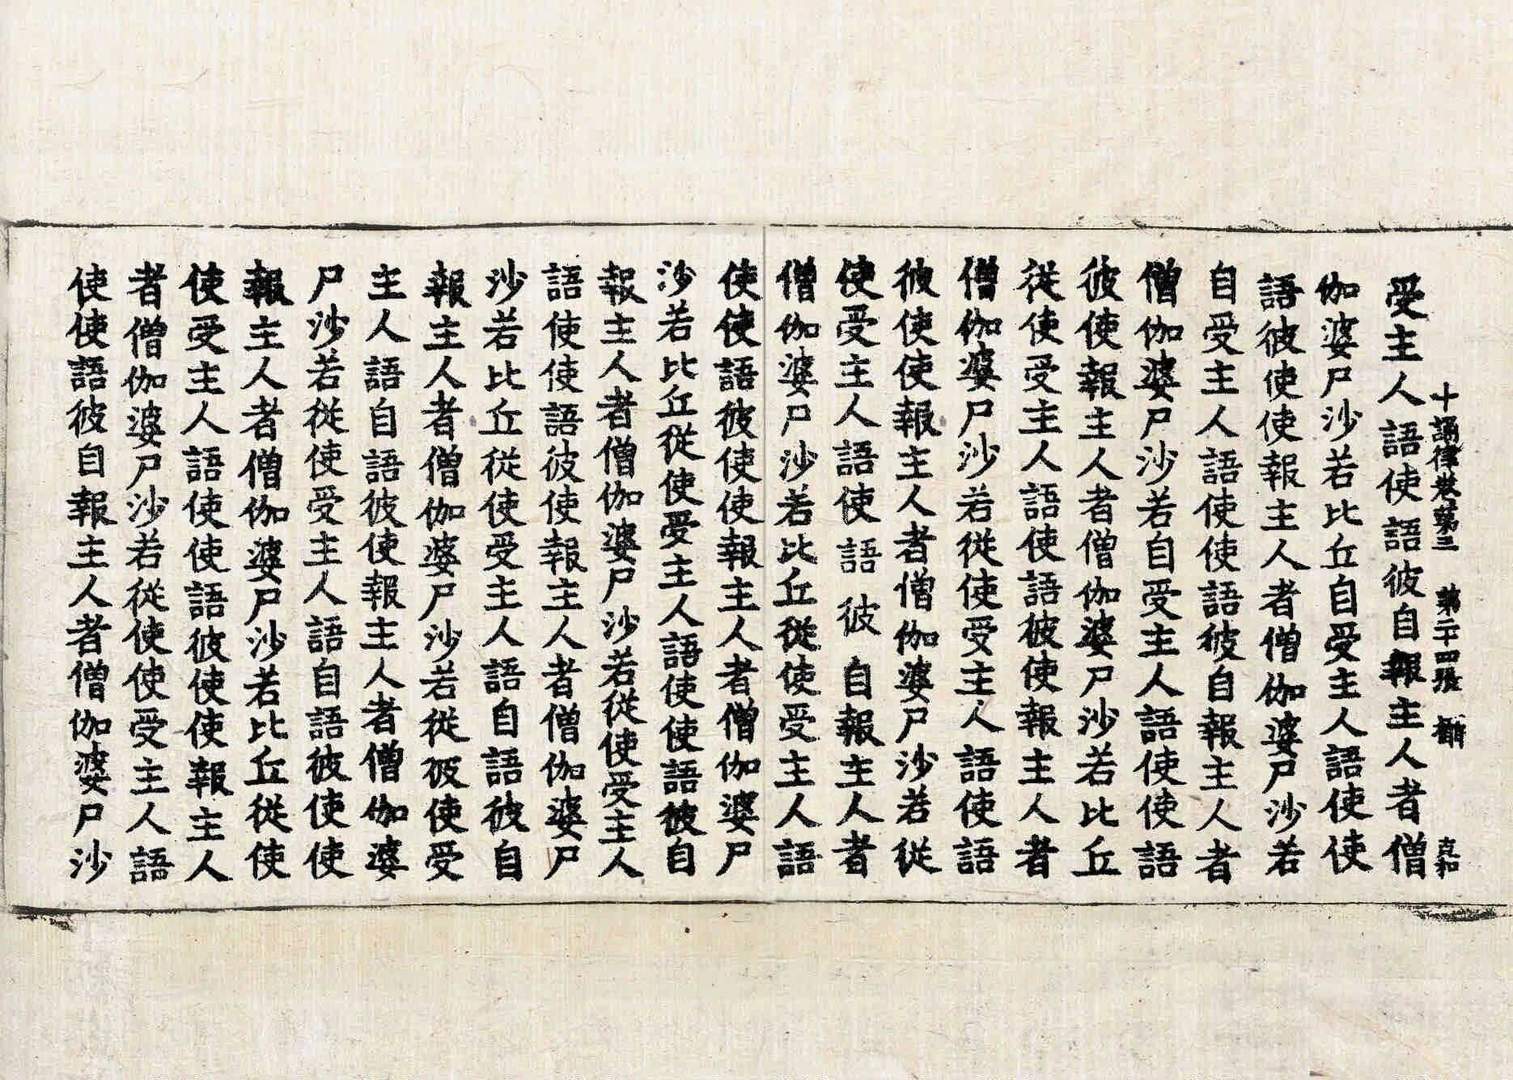 十誦律卷第三 第二十四張 攝
受主人語使語彼自報主人者僧
伽婆尸沙若比丘自受主人語使使
語彼使使報主人者僧伽婆尸沙若
自受主人語使使語彼自報主人者
僧伽婆尸沙若自受主人語使使語
彼使報主人者僧伽婆尸沙若比丘
從使受主人語使語彼使報主人者
僧伽婆尸沙若從使受主人語使語
彼使使報主人者僧伽婆尸沙若從
使受主人語使語彼自報主人者
僧伽婆尸沙若比丘從使受主人語
使使語彼使使報主人者僧伽婆尸
沙若比丘從使受主人語使使語彼自
報主人者僧伽婆尸沙若從使受主人
語使使語彼使報主人者僧伽婆尸
沙若比丘從使受主人語自語彼自
報主人者僧伽婆尸沙若從彼使受
主人語自語彼使報主人者僧伽婆
尸沙若從使受主人語自語彼使使
報主人者僧伽婆尸沙若比丘從使
使受主人語使使語彼使使報主人
者僧伽婆尸沙若從使使受主人語
使使語彼自報主人者僧伽婆尸沙